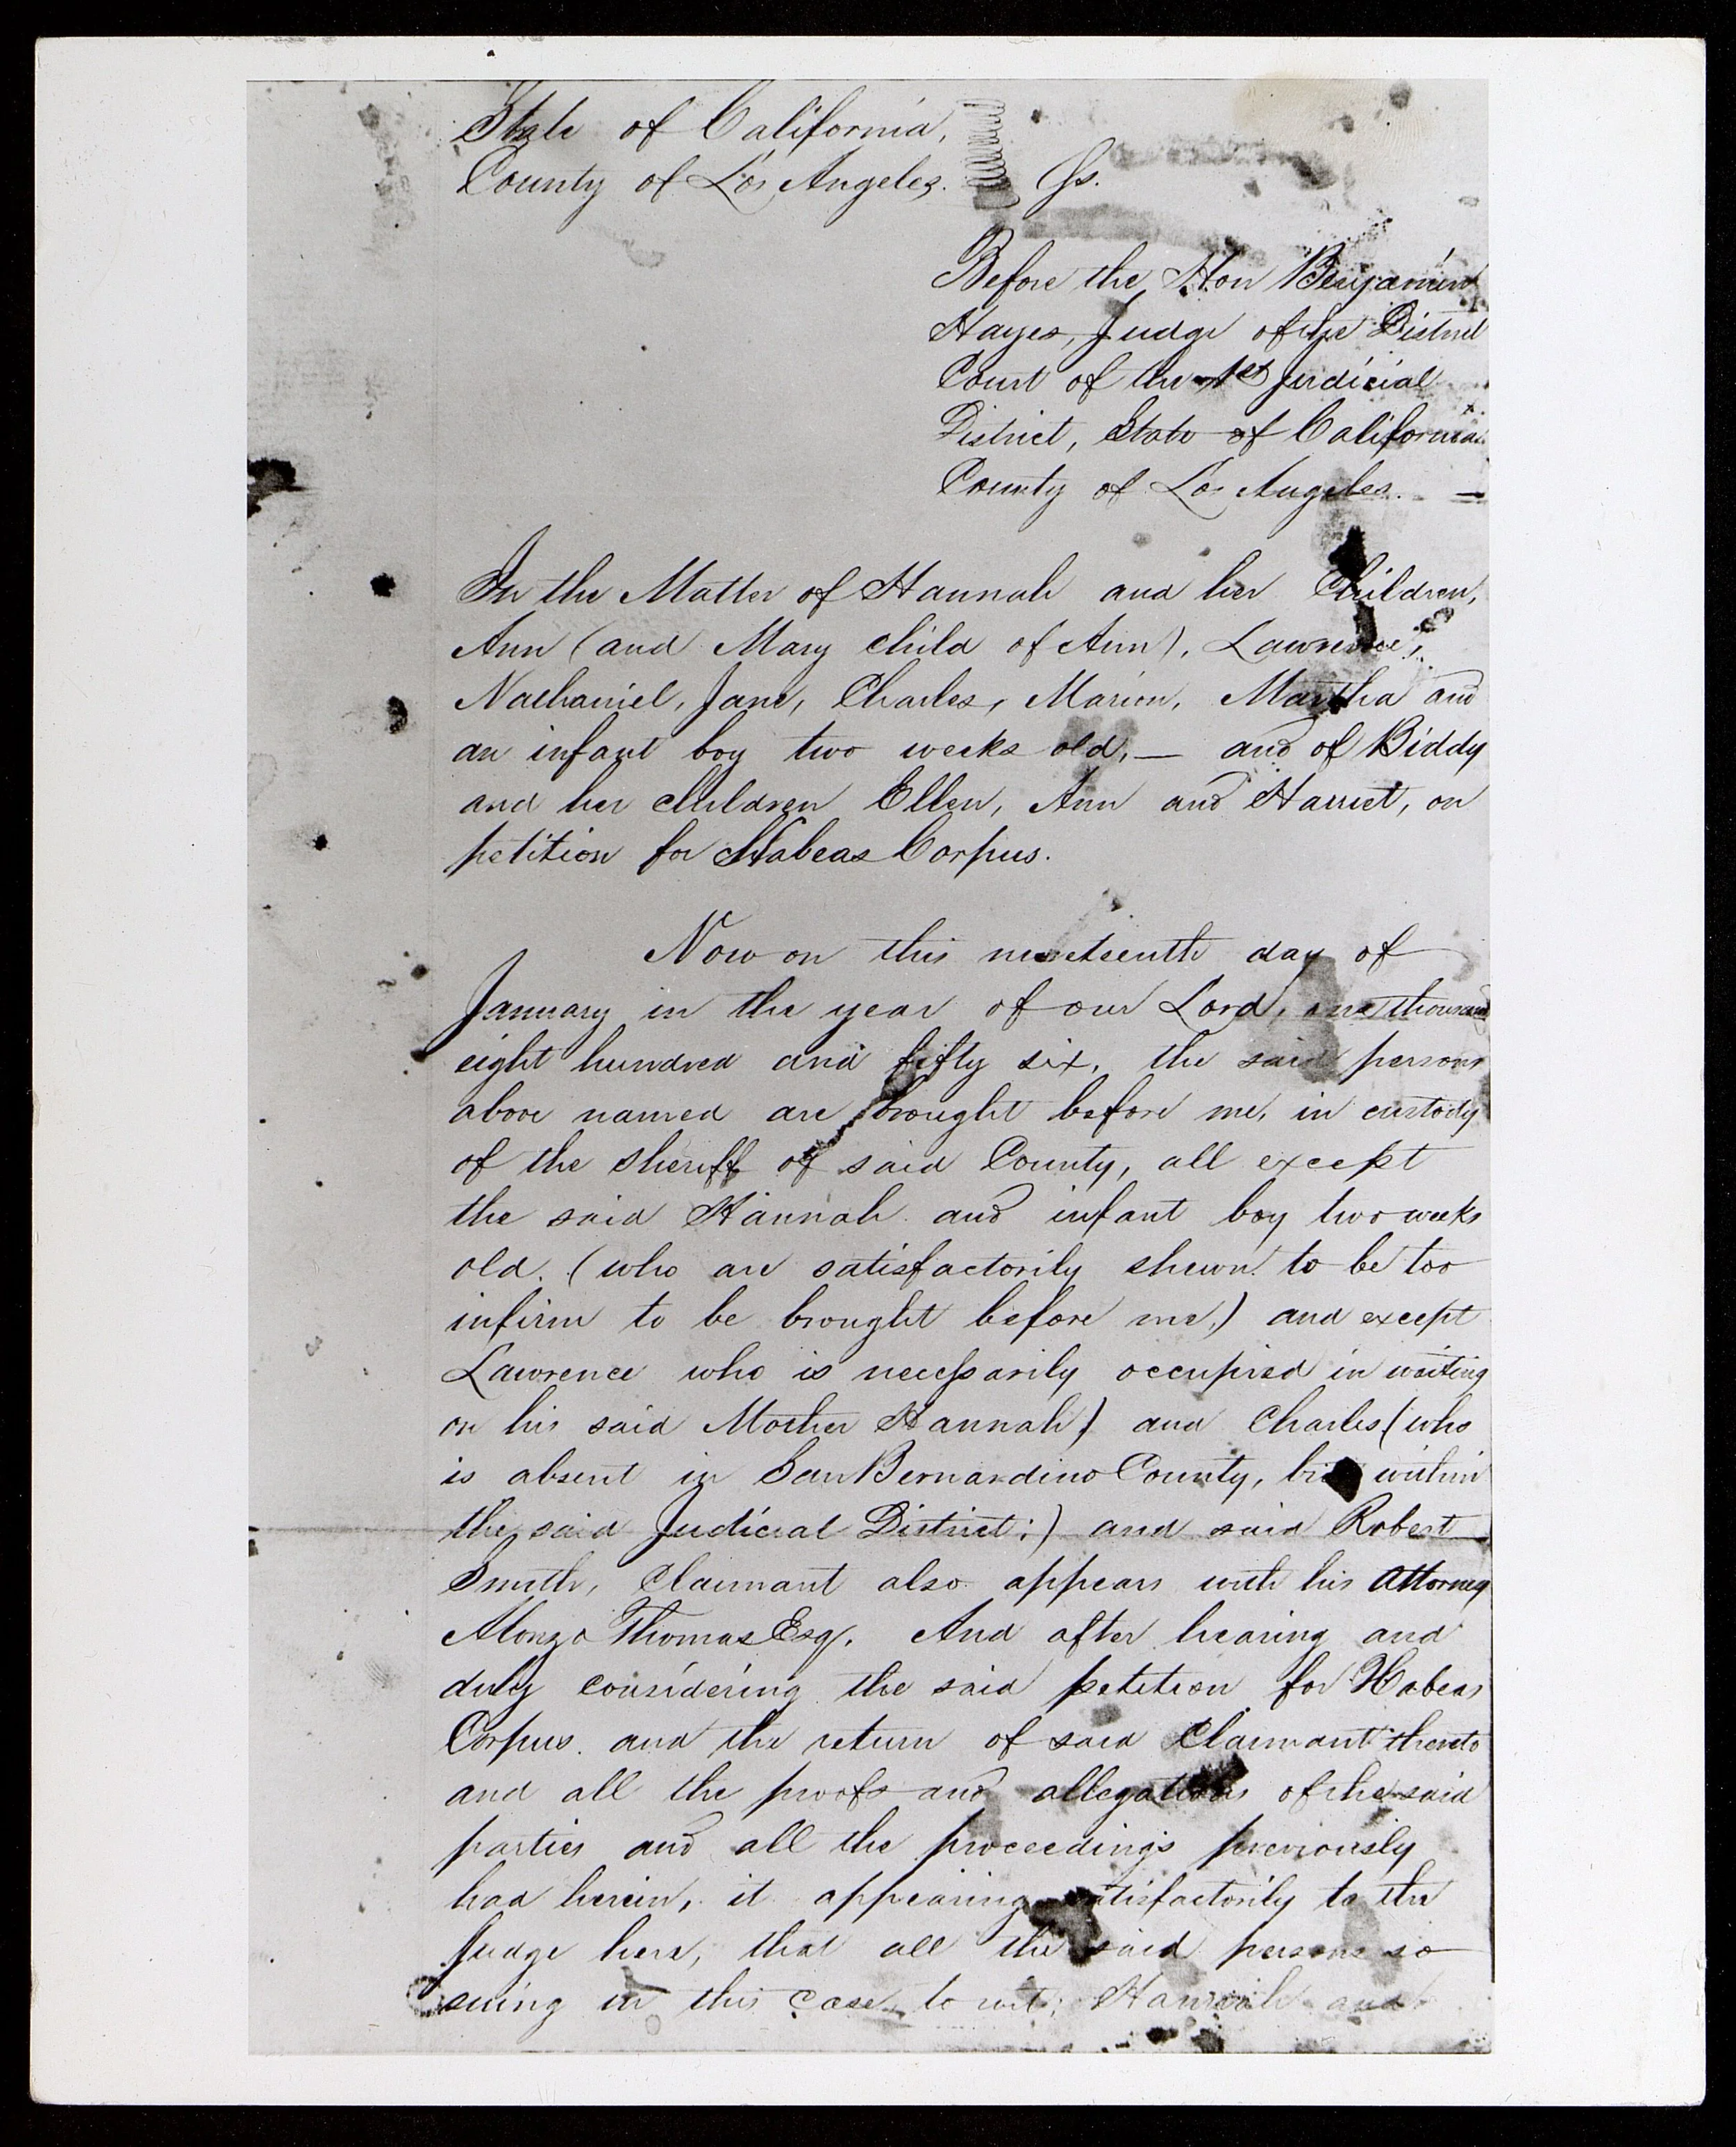 State of California,
County of Los Angeles. Ss.
Before the Hon Benjamin
Hayes, Judge of the District
Court of the 1st Judicial
District, State of California
County of Los Angeles. —
In the Matter of Hannah and her Children,
Ann (and Mary child of Ann), Lawrence,
Nathaniel, Jane, Charles, Marion, Martha and
an infant boy two weeks old, — and of Biddy
and her children Ellen, Ann and Harriet, on
petition for Habeas Corpus.
Now on this nineteenth day of
January in the year of our Lord, one thousand
eight hundred and fifty six, the said persons
above named are brought before me, in custody
of the sheriff of said County, all except
the said Hannah and infant boy two weeks
old. (who are satisfactorily shewn to be too
infirm to be brought before me,) and except
Lawrence who is necessarily occupied in waiting
on his said Mother Hannah) and Charles (who
is absent in San Bernardino County, but within
the said Judicial District;) and said Robert
Smith, Claimant also appears with his Attorney
Alonzo Thomas Esq. And after hearing and
duly considering the said petition for Habeas
Corpus. and the return of said Claimant thereto
and all the proofs and allegations of the said
parties and all the proceedings previously
had herein, it appearing satisfactorily to the
Judge here, that all the said persons so
suing in this case, to wit; Hannah and